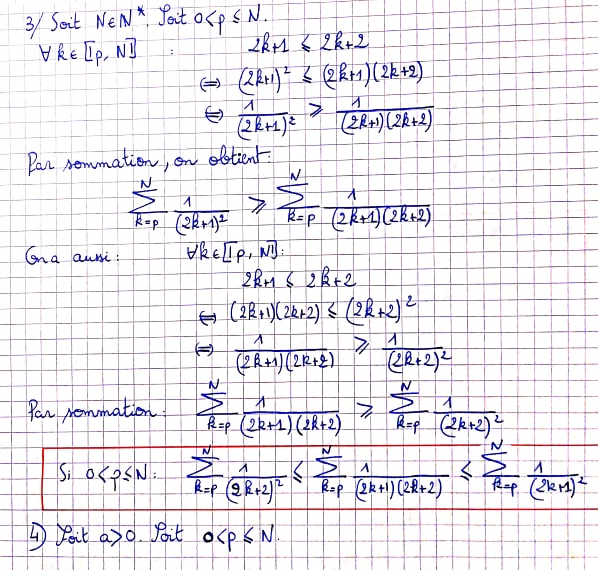 3/ Soit N∈ℕ*. Soit 0<p≤N.
∀k∈⟦p, N⟧ : 2k+1 ≤ 2k+2
⇔ (2k+1)² ≤ (2k+1)(2k+2)
⇔ 1/(2k+1)² ≥ 1/((2k+1)(2k+2))
Par sommation, on obtient:
∑_{k=p}^{N} 1/(2k+1)² ≥ ∑_{k=p}^{N} 1/((2k+1)(2k+2))
On a aussi: ∀k∈⟦p, N⟧:
2k+1 ≤ 2k+2
⇔ (2k+1)(2k+2) ≤ (2k+2)²
⇔ 1/((2k+1)(2k+2)) ≥ 1/(2k+2)²
Par sommation: ∑_{k=p}^{N} 1/((2k+1)(2k+2)) ≥ ∑_{k=p}^{N} 1/(2k+2)²
Si 0<p≤N: ∑_{k=p}^{N} 1/(2k+2)² ≤ ∑_{k=p}^{N} 1/((2k+1)(2k+2)) ≤ ∑_{k=p}^{N} 1/(2k+1)²
4) Soit a>0. Soit 0<p≤N.